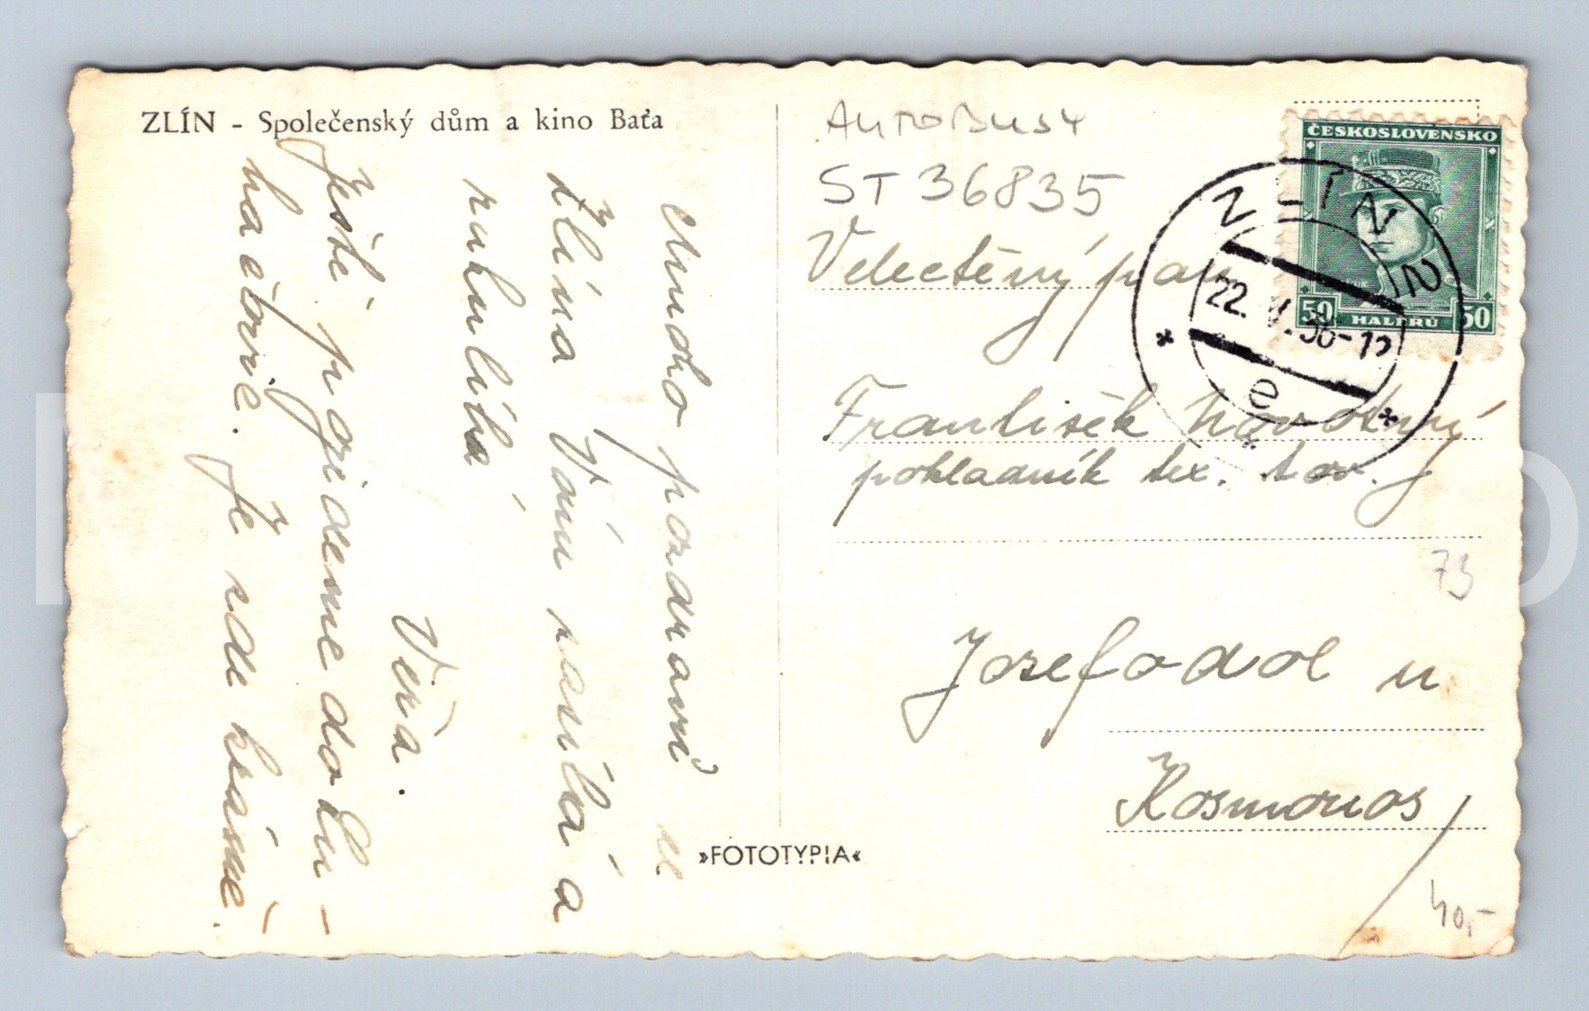 ZLÍN - Společenský dům a kino Baťa
Mnoho pozdravů ze
Zlína Vám zasílá a
Věra.
Ještě pojedeme do Lu-
hačovic. Je zde krásně.
»FOTOTYPIA«
AUTOBUSY
ST 36835
Velectěný pan
František Novotný
pokladník tex. tov.
Josefodol u
Kosmonos
73
40,-
ČESKOSLOVENSKO
50 HALÉŘŮ 50
ZLÍN 2
22. V. 36-12
e